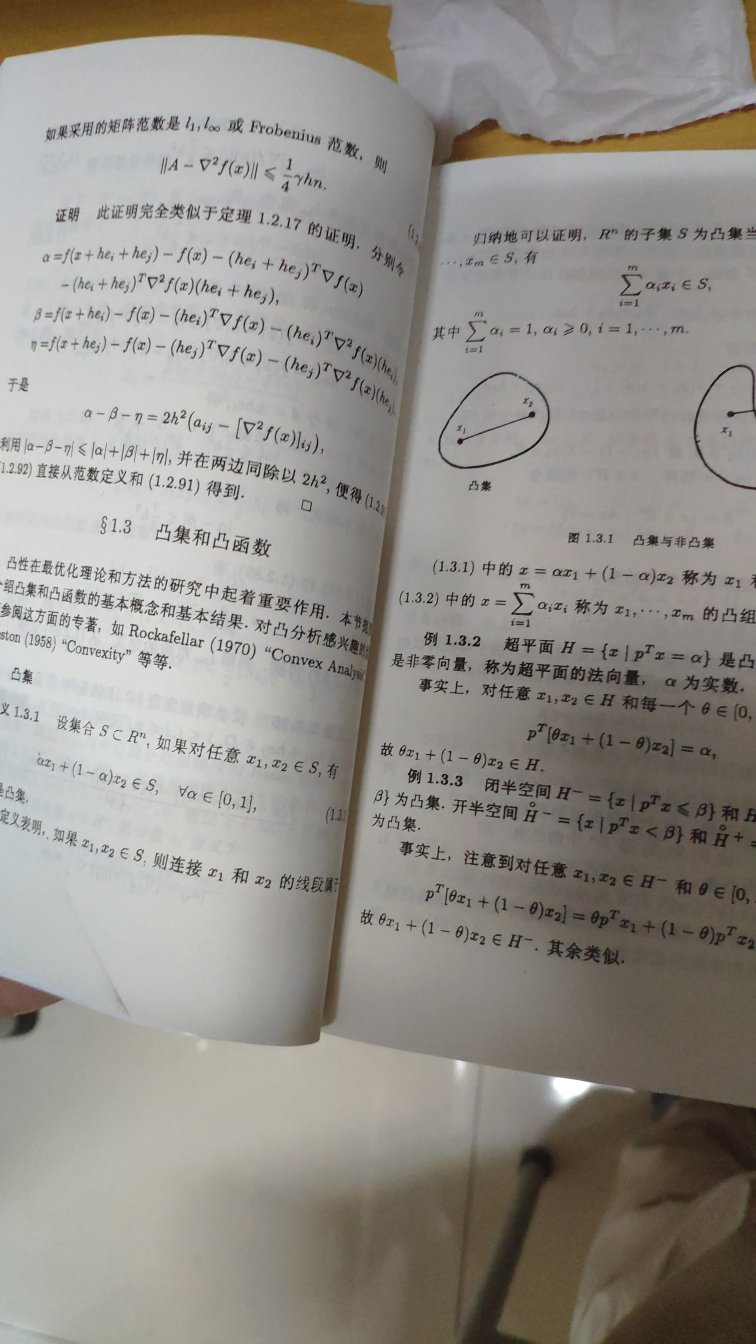 如果采用的矩阵范数是 l₁, l∞ 或 Frobenius 范数, 则
‖A − ∇²f(x)‖ ⩽ 1/4 γhn.
证明 此证明完全类似于定理 1.2.17 的证明. 分别令
α = f(x + heᵢ + heⱼ) − f(x) − (heᵢ + heⱼ)ᵀ∇f(x)
− (heᵢ + heⱼ)ᵀ∇²f(x)(heᵢ + heⱼ),
β = f(x + heᵢ) − f(x) − (heᵢ)ᵀ∇f(x) − (heᵢ)ᵀ∇²f(x)(heᵢ),
η = f(x + heⱼ) − f(x) − (heⱼ)ᵀ∇f(x) − (heⱼ)ᵀ∇²f(x)(heⱼ),
于是
α − β − η = 2h²(aᵢⱼ − [∇²f(x)]ᵢⱼ),
利用 |α−β−η| ⩽ |α|+|β|+|η|, 并在两边同除以 2h², 便得
1.2.92) 直接从范数定义和 (1.2.91) 得到. □
§1.3 凸集和凸函数
凸性在最优化理论和方法的研究中起着重要作用. 本节
绍凸集和凸函数的基本概念和基本结果. 对凸分析感兴趣的
参阅这方面的专著, 如 Rockafellar (1970) “Convex Analysis
(1958) “Convexity” 等等.
凸集
义 1.3.1 设集合 S ⊂ Rⁿ, 如果对任意 x₁, x₂ ∈ S, 有
αx₁ + (1 − α)x₂ ∈ S, ∀α ∈ [0, 1], (1.3.
是凸集.
定义表明, 如果 x₁, x₂ ∈ S, 则连接 x₁ 和 x₂ 的线段属于
归纳地可以证明, Rⁿ 的子集 S 为凸集当
⋯, xₘ ∈ S, 有
∑ᵢ₌₁ᵐ αᵢxᵢ ∈ S,
其中 ∑ᵢ₌₁ᵐ αᵢ = 1, αᵢ ⩾ 0, i = 1, ⋯, m.
x₁ x₂
x₁
凸集
图 1.3.1 凸集与非凸集
(1.3.1) 中的 x = αx₁ + (1 − α)x₂ 称为 x₁ 和
(1.3.2) 中的 x = ∑ᵢ₌₁ᵐ αᵢxᵢ 称为 x₁, ⋯, xₘ 的凸组
例 1.3.2 超平面 H = {x | pᵀx = α} 是凸
是非零向量, 称为超平面的法向量, α 为实数.
事实上, 对任意 x₁, x₂ ∈ H 和每一个 θ ∈ [0,
pᵀ[θx₁ + (1 − θ)x₂] = α,
故 θx₁ + (1 − θ)x₂ ∈ H.
例 1.3.3 闭半空间 H⁻ = {x | pᵀx ⩽ β} 和 H
β} 为凸集. 开半空间 H̊⁻ = {x | pᵀx < β} 和 H̊⁺ =
为凸集.
事实上, 注意到对任意 x₁, x₂ ∈ H⁻ 和 θ ∈ [0,
pᵀ[θx₁ + (1 − θ)x₂] = θpᵀx₁ + (1 − θ)pᵀx₂
故 θx₁ + (1 − θ)x₂ ∈ H⁻. 其余类似.